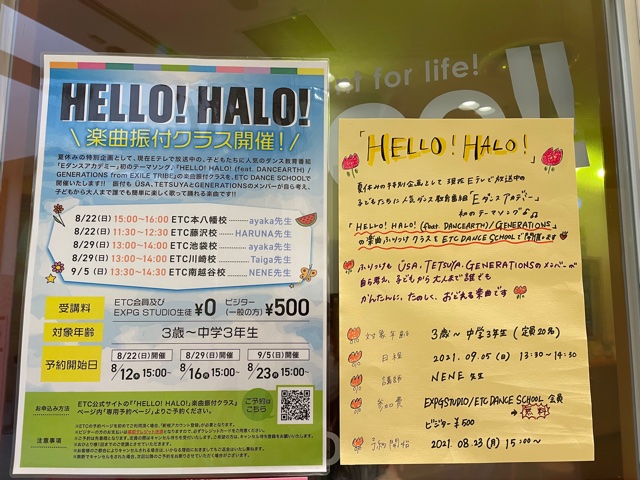 t for life!
HELLO! HALO!
楽曲振付クラス開催!
夏休みの特別企画として、現在Eテレで放送中の、子どもたちに人気のダンス教育番組
「Eダンスアカデミー」初のテーマソング、「HELLO! HALO! (feat. DANCEARTH) /
GENERATIONS from EXILE TRIBE」の楽曲振付クラスを、ETC DANCE SCHOOLで
開催いたします!! 振付も ÜSA、TETSUYAとGENERATIONSのメンバーが自ら考え、
子どもから大人まで誰でも簡単に楽しく歌って踊れる楽曲です!!
8/22(日) 15:00~16:00 ETC本八幡校 ayaka先生
8/22(日) 11:30~12:30 ETC藤沢校 HARUNA先生
8/29(日) 13:00~14:00 ETC池袋校 ayaka先生
8/29(日) 13:00~14:00 ETC川崎校 Taiga先生
9/5(日) 13:30~14:30 ETC南越谷校 NENE先生
受講料 ETC会員及び EXPG STUDIO生徒 ¥0 ビジター (一般の方) ¥500
対象年齢 3歳~中学3年生
予約開始日 8/22(日)開催 8/29(日)開催 9/5(日)開催
8/12 15:00~ 8/16 15:00~ 8/23 15:00~
お申込み方法 ETC公式サイトの「『HELLO! HALO!』楽曲振付クラス」
ページ内「専用予約ページ」よりご予約ください。
ご予約は
こちら
注意事項
「HELLO! HALO!」
夏休みの特別企画として 現在 Eテレで 放送中の
子どもたちに人気 ダンス教育番組「Eダンスアカデミー」
初のテーマソング♪
「HELLO! HALO! (feat. DANCEARTH)/GENERATIONS」
の楽曲ふりつけクラスを ETC DANCE SCHOOLで開催します
ふりつけも ÜSA、TETSUYA、GENERATIONSのメンバーが
自ら考え、子どもから大人まで誰でも
かんたんに、たのしく、おどれる楽曲です
対象年齢 3歳~中学3年生 (定員20名)
日程 2021.09.05(日) 13:30~14:30
講師 NENE 先生
参加費 EXPG STUDIO/ETC DANCE SCHOOL 会員
→ 無料
ビジター ¥500
予約開始 2021.08.23(月) 15:00~